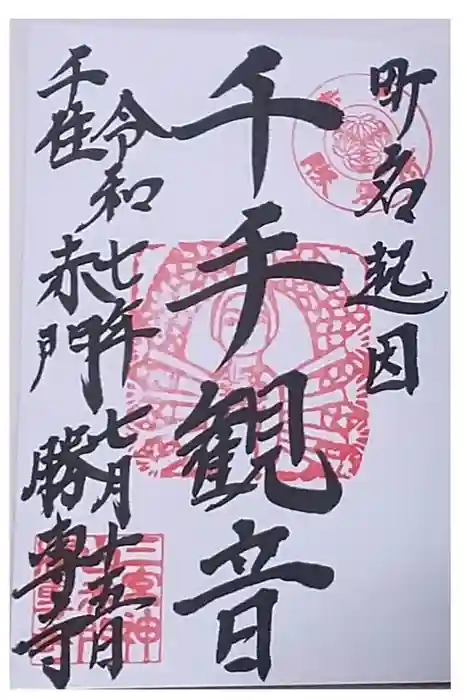 町名起因
千手観音
令和七年七月十五日
千住赤門勝専寺
三宮神